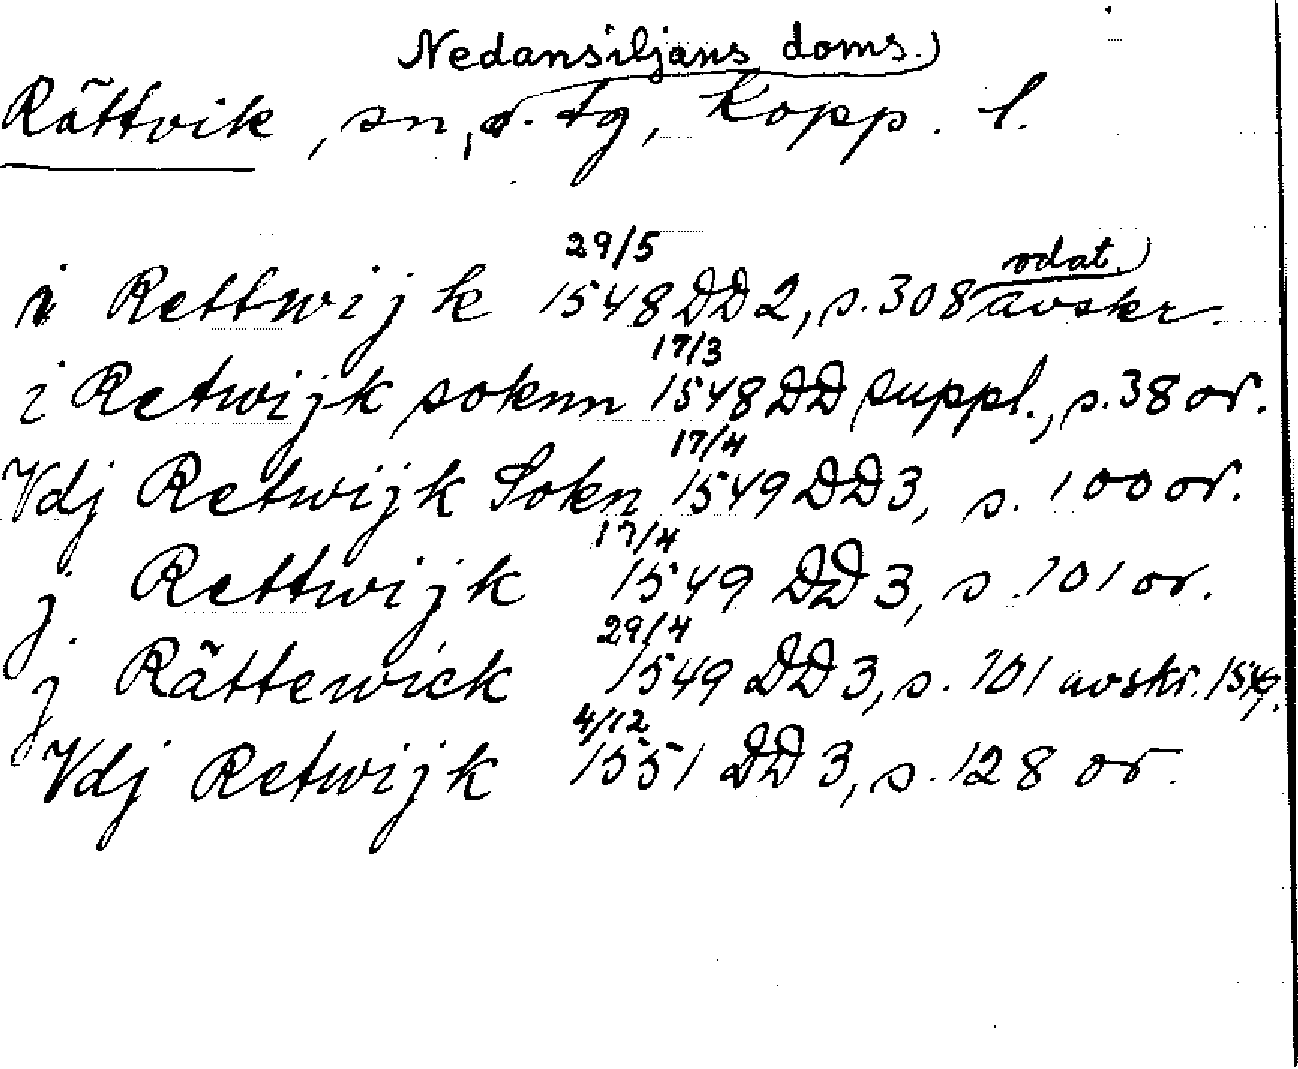 Nedansiljans doms.
Rättvik, sn, o. tg, Kopp. l.
i Rettwijk 29/5 1548 DD 2, s. 308 odat. avskr.
i Retwijk soknn 17/3 1548 DD suppl., s. 38 or.
Vdj Retwijk Sokn 17/4 1549 DD 3, s. 100 or.
j Rettwijk 17/4 1549 DD 3, s. 101 or.
j Rättewick 29/4 1549 DD 3, s. 101 avskr.
Vdj Retwijk 4/12 1551 DD 3, s. 128 or.